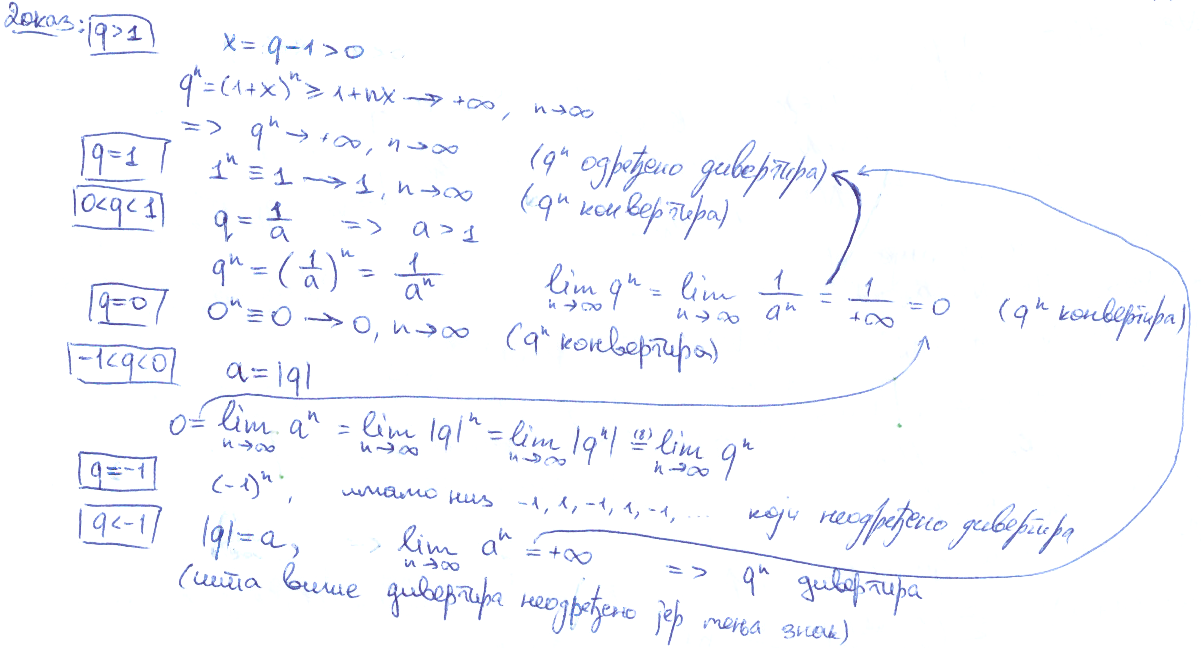 Доказ: q>1
x = q-1 > 0
qⁿ = (1+x)ⁿ ≥ 1+nx → +∞, n→∞
=> qⁿ → +∞, n→∞ (qⁿ одређено дивергира)
q=1 1ⁿ ≡ 1 → 1, n→∞ (qⁿ конвергира)
0<q<1 q = 1/a => a > 1
qⁿ = (1/a)ⁿ = 1/aⁿ lim n→∞ qⁿ = lim n→∞ 1/aⁿ = 1/+∞ = 0 (qⁿ конвергира)
q=0 0ⁿ ≡ 0 → 0, n→∞ (qⁿ конвергира)
-1<q<0 a = |q|
0 = lim n→∞ aⁿ = lim n→∞ |q|ⁿ = lim n→∞ |qⁿ| (8)= lim n→∞ qⁿ
q=-1 (-1)ⁿ, имамо низ -1, 1, -1, 1, -1, ... који неодређено дивергира
q<-1 |q| = a, lim n→∞ aⁿ = +∞ => qⁿ дивергира
(шта више дивергира неодређено јер мења знак)